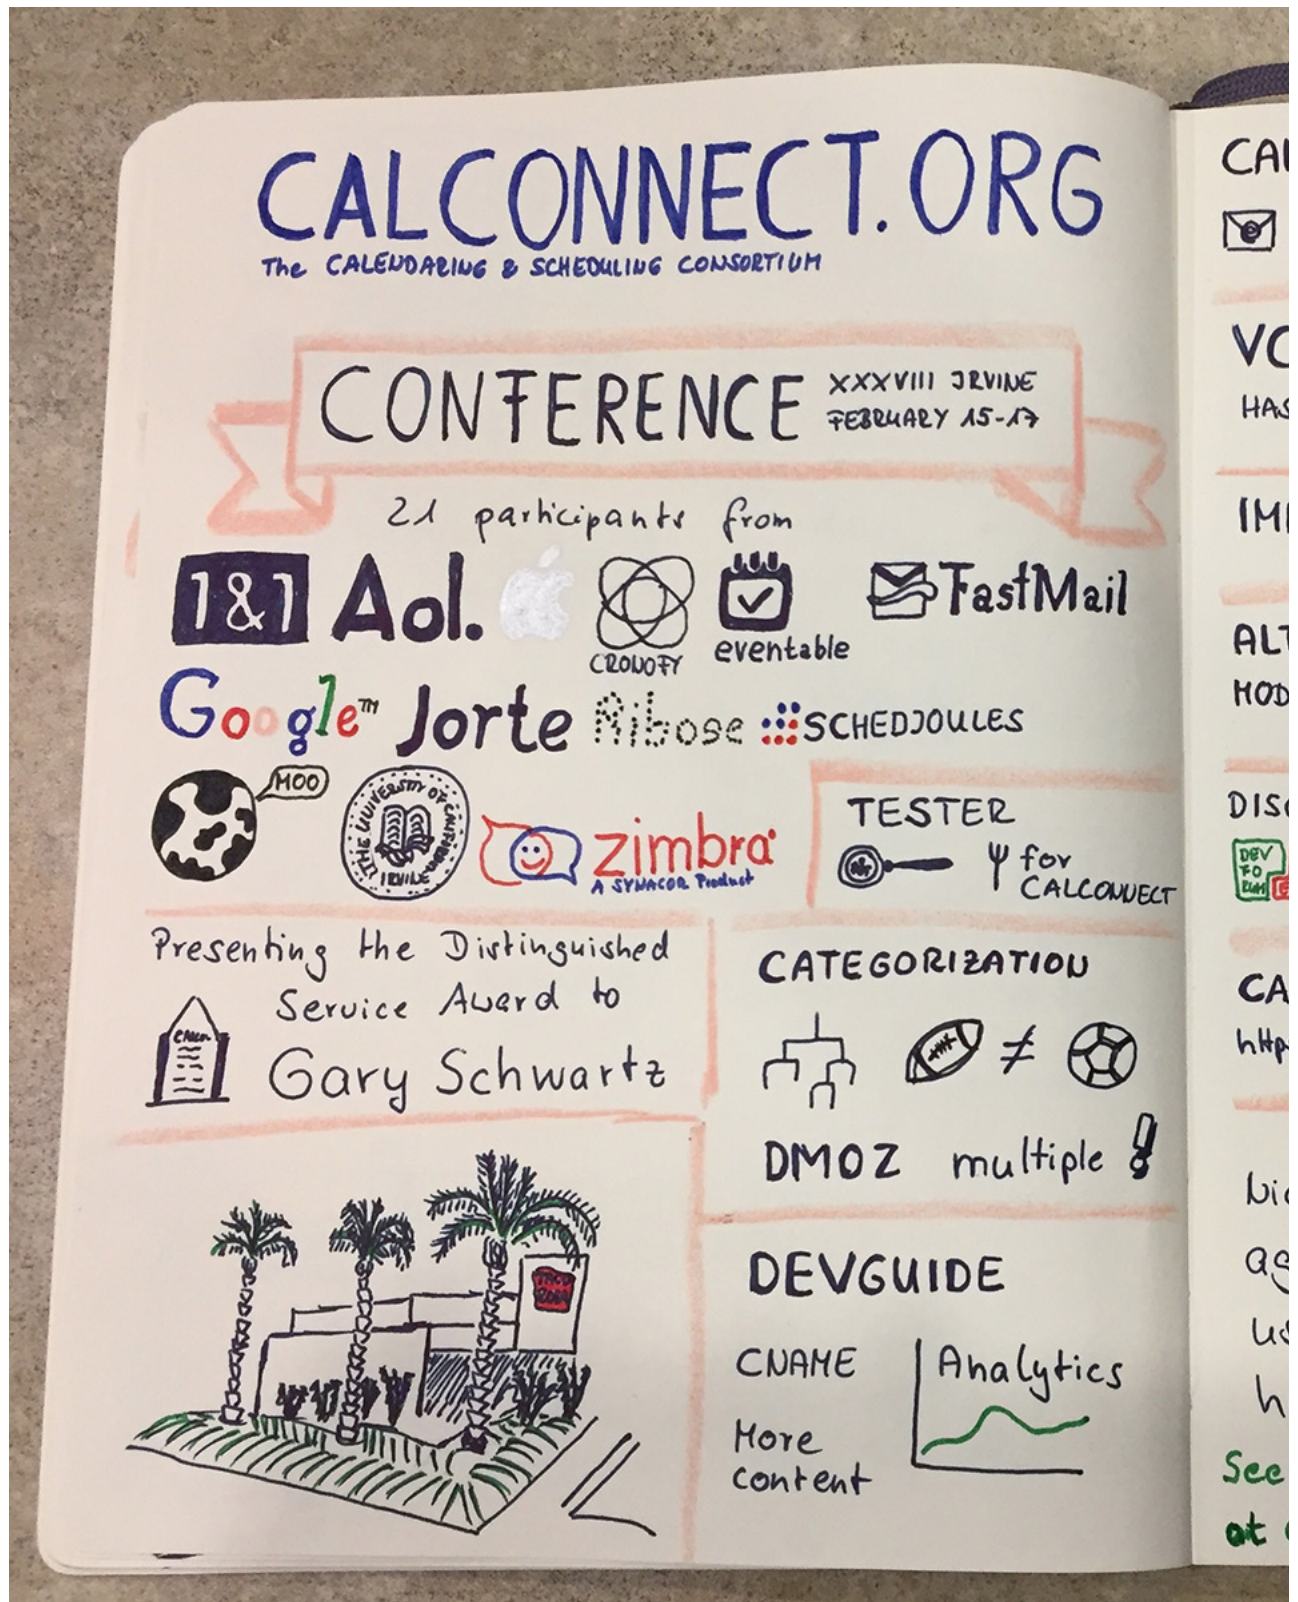 CALCONNECT.ORG
The CALENDARING & SCHEDULING CONSORTIUM
CONFERENCE
XXXVIII IRVINE
FEBRUARY 15-17
21 participants from
1&1 Aol.
CRONOFY
eventable
FastMail
Google™ Jorte Ribose SCHEDJOULES
MOO
THE UNIVERSITY OF CALIFORNIA
IRVINE
zimbra
A SYNACOR Product
TESTER
for
CALCONNECT
Presenting the Distinguished
Service Award to
Gary Schwartz
CATEGORIZATION
≠
DMOZ multiple !
DEVGUIDE
CNAME
Analytics
More
content
CAL
VC
HAS
IM
ALT
MOD
DISC
DEV
FO
RUM
CA
http
Nic
ag
us
h
See
at